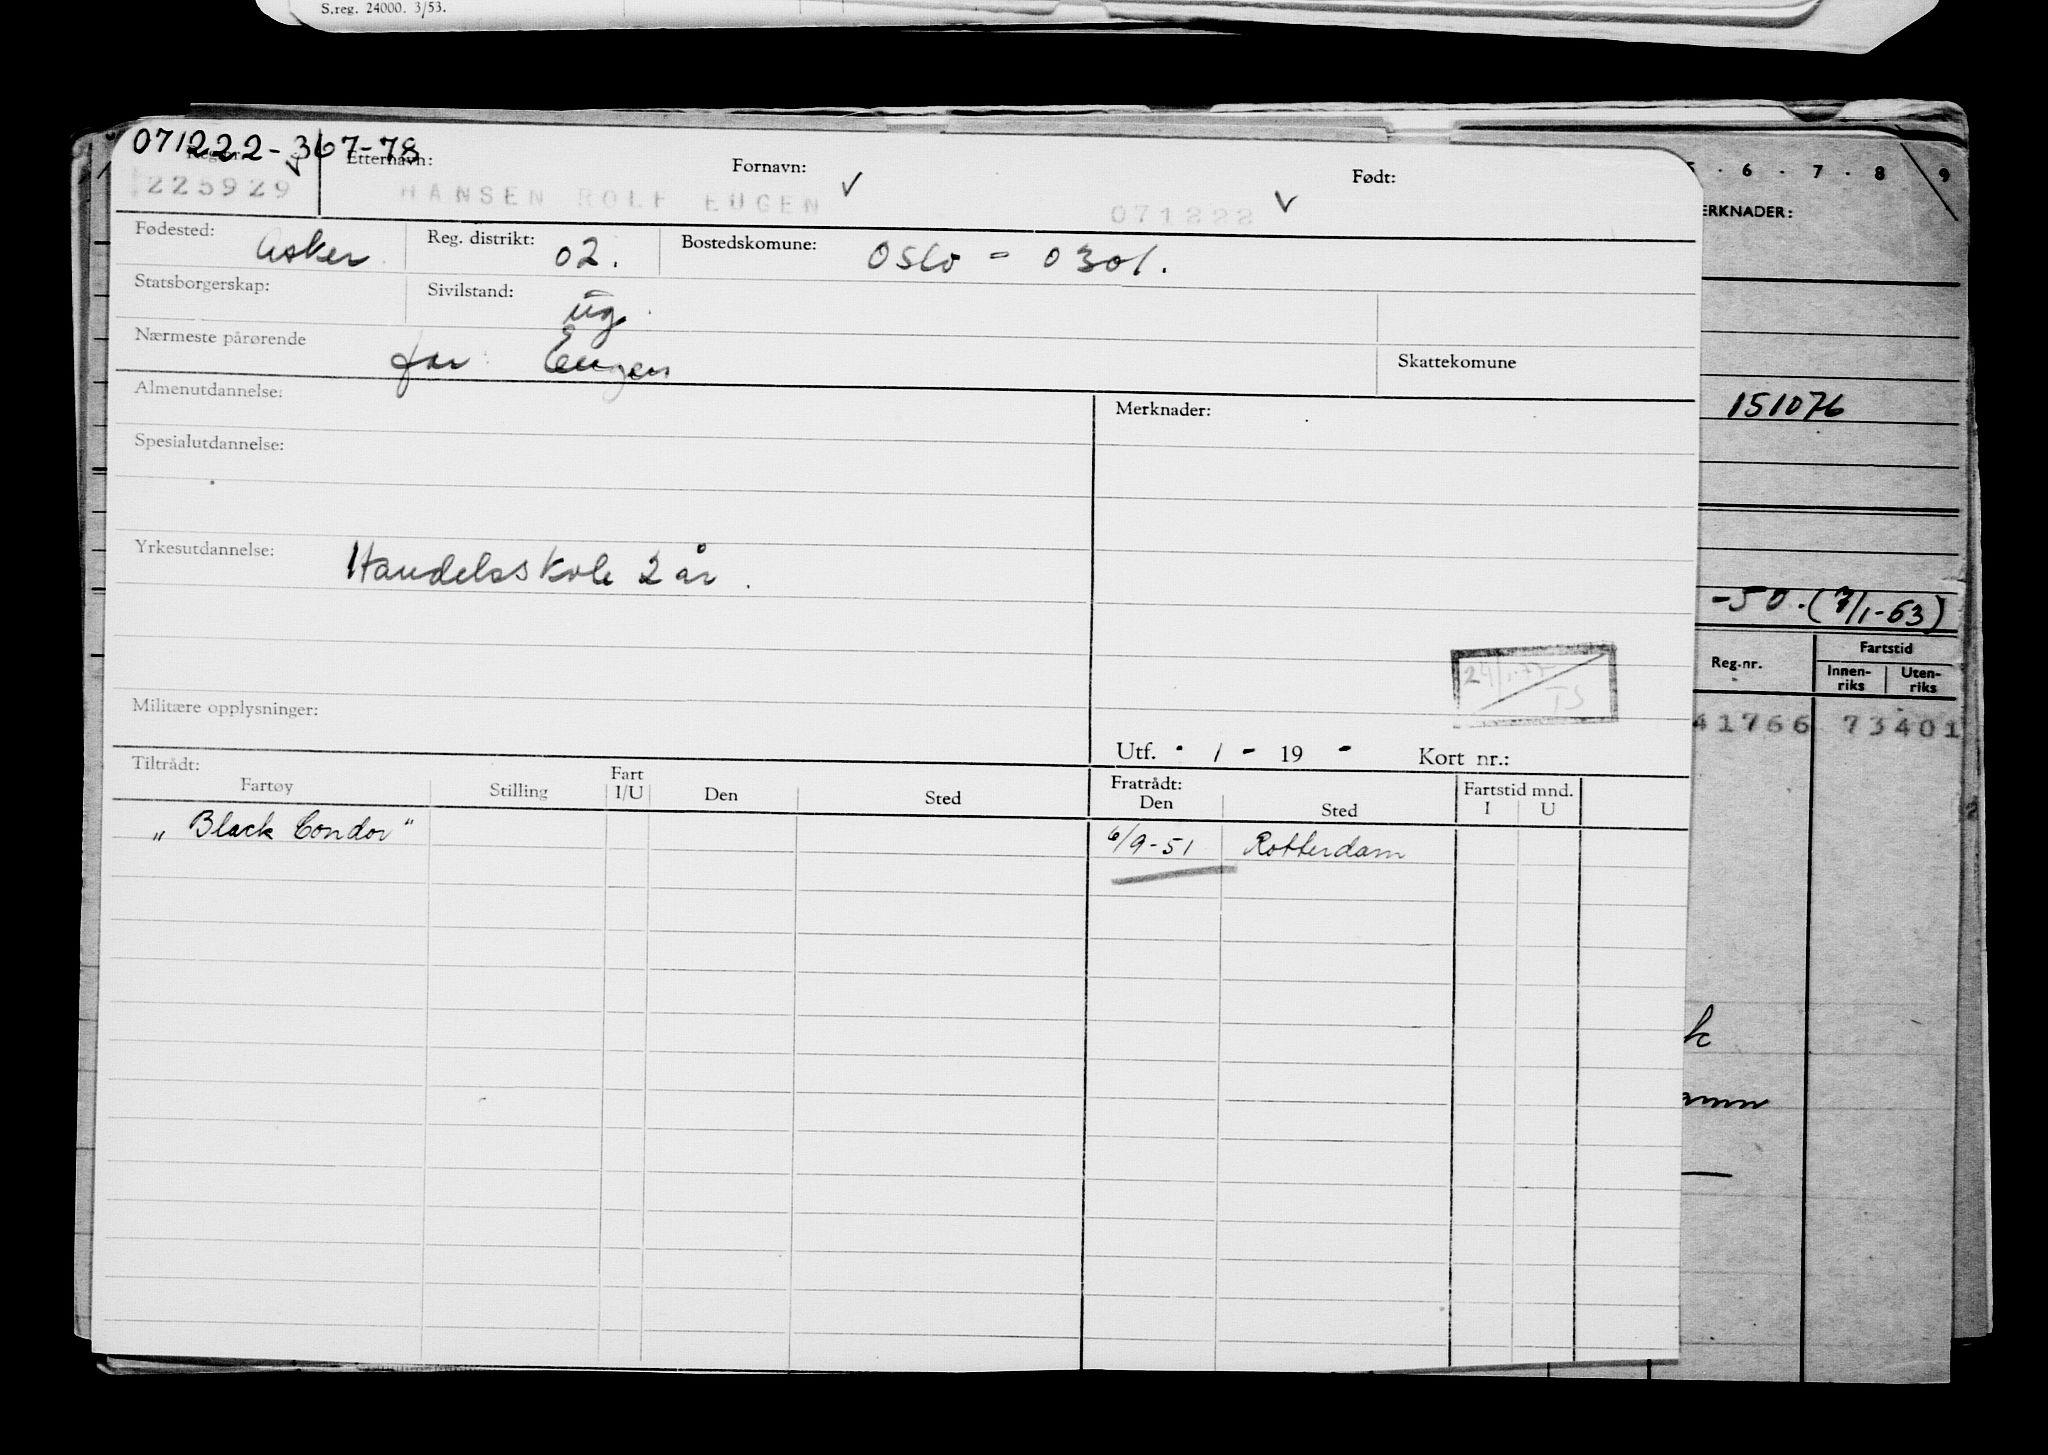 S.reg. 24000. 3/53.
071222-367-78
Etternavn: Fornavn: Født:
225929 HANSEN ROLF EUGEN 071222
Fødested: Asker Reg. distrikt: 02. Bostedskomune: Oslo - 0301.
Statsborgerskap: Sivilstand: ug
Nærmeste pårørende far: Eugen Skattekomune
Almenutdannelse: Merknader:
Spesialutdannelse:
Yrkesutdannelse: Handelsskole 2 år.
Militære opplysninger:
Utf. - / - 19 - Kort nr.:
Tiltrådt: Fratrådt: Fartstid mnd.
Fartøy Stilling Fart I/U Den Sted Den Sted I U
„Black Condor" 6/9-51 Rotterdam
TS
6 . 7 . 8 9
ERKNADER:
151076
-50. (7/1-63)
Reg.nr. Fartstid
Innen-riks Uten-riks
41766 73401